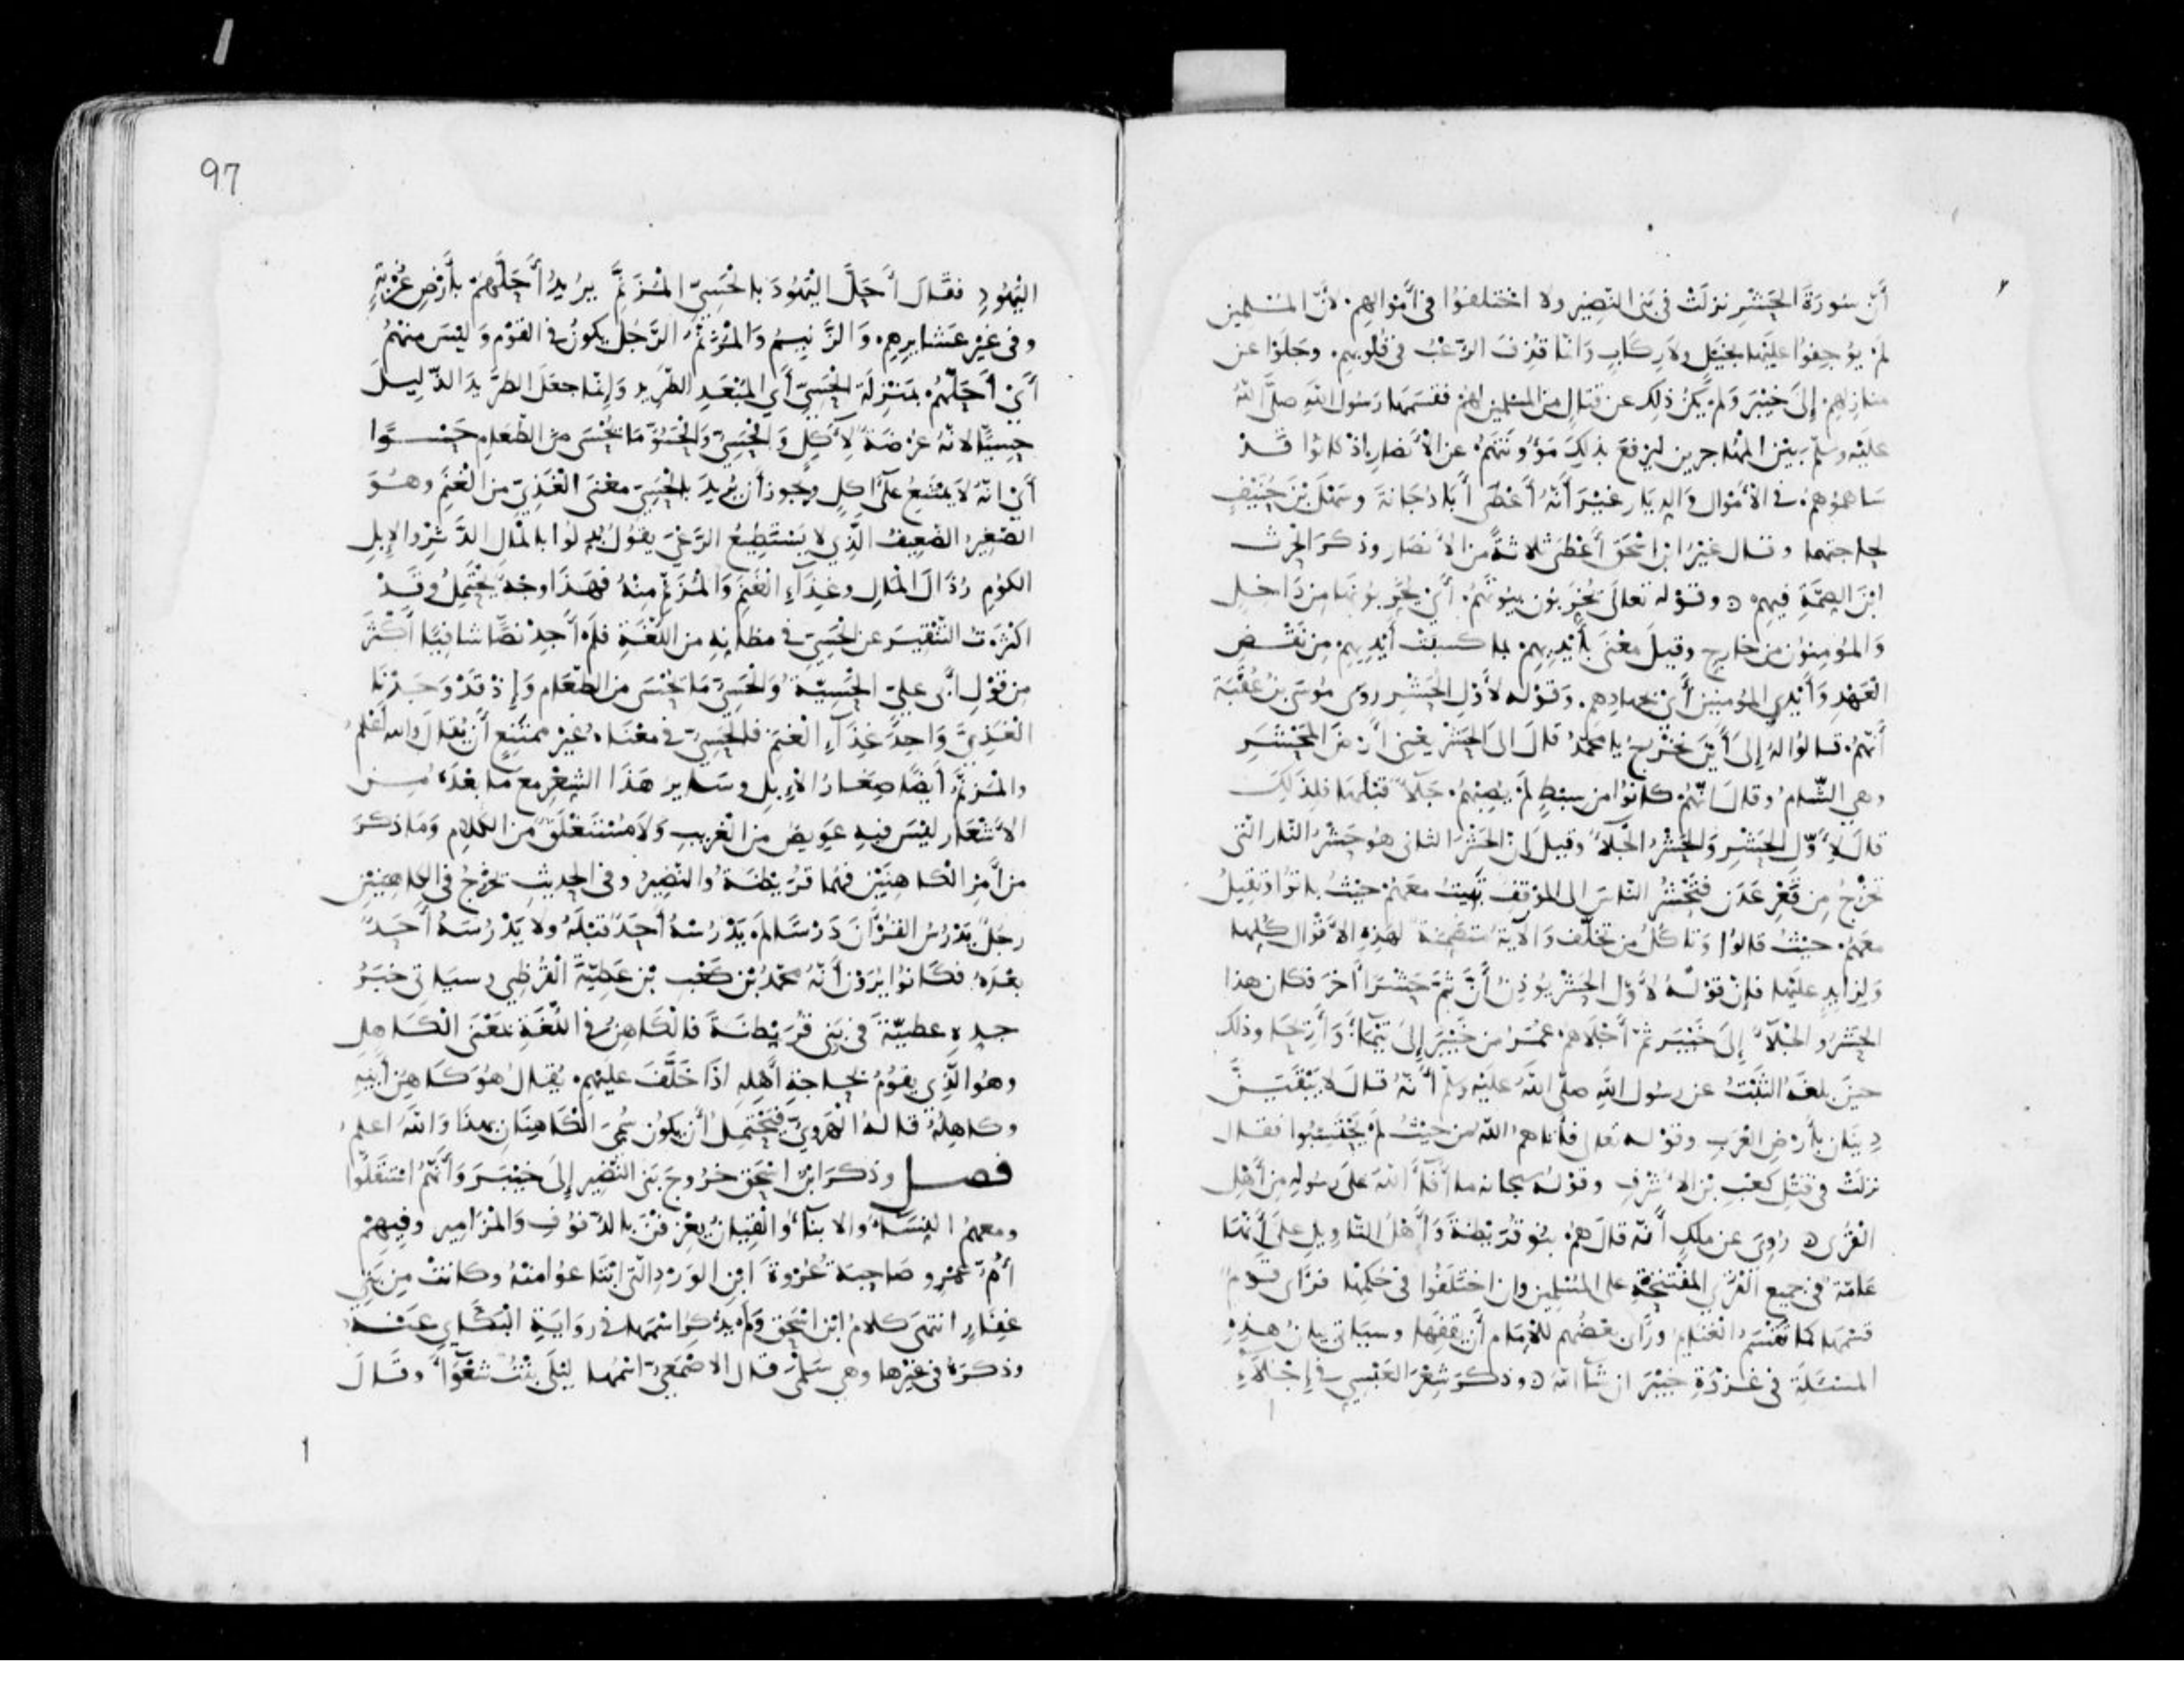 أنّ سُورَةَ الحَشْرِ نزلَتْ في بَني النَّضِير ولا اختلفُوا في أَمْوَالِهِم لأنّ المسْلمين
لم يُوجِفُوا عليْها بخَيْلٍ ولا ركابٍ وَانّما قُذِفَ الرّعْبُ في قلُوبِهم وجَلَوْا عن
منازِلهِم إلى خَيْبَرَ وَلم يكُنْ ذلك عن قتالٍ من المسلمين لهُم فقسمَها رَسُول الله صلّى اللّهُ
عليْه وسلّم بيْن المُهاجرين ليَرفعَ بذلكَ مَؤُونتَهُمْ عن الأنصار إذ كانوا قَدْ
سَاهمُوهُم في الأمْوال وَالدِيَار غيْرَ أنّهُ أعْطَى أبَا دُجَانةَ وسَهْلَ بْنَ حُنَيْفٍ
لحاجتهما وقال غيْرُ ابن اسْحَق أعْطَى ثلاثةً من الأنصَار وذكرَ الحرث
ابْنَ الصِمَّةِ فيهم ه وقوْله تعالى يُخْرِبُون بيُوتَهُمْ أَيْ يُخْرِبُونَها من دَاخلٍ
وَالمُؤمِنُون من خارجٍ وقيلَ معْنَى بأيْدِيهم بما كسبَتْ أيْدِيهِم مِن نَقْضِ
العَهْدِ وَأيْدِي المؤمنين أيْ بجهادِهِم وَقوْله لأوّل الحَشْر رَوَى مُوسَى بْنُ عُقْبَةَ
أنّهمْ قالُوا لهُ إلَى أيْنَ نخْرُجُ يا محمّدُ قالَ الى الحَشْر يعْني أرْضَ المَحْشَرِ
وهي الشّامُ وقال انّهُمْ كانُوا من سِبْطٍ لم يُصِبْهُمْ جَلَاءٌ قبْلهَا فلِذلكَ
قال لأَوّل الحَشْرِ وَالحَشْرُ الجَلَاءُ وقيلَ انّ الحَشْرَ الثاني هُو حَشْرُ النّار التي
تخرُجُ مِن قَعْرِ عَدَن فتَحْشُرُ النّاسَ الى المَوْقِفِ تَبِيتُ معَهُم حَيْثُ باتُوا وتقيلُ
معَهُم حيْثُ قالُوا وَتأكلُ من تخلّف وَالآيَةُ متضمّنَةٌ لهذِهِ الأقْوال كلّها
وَلزايِدٍ عليْها فإنّ قوْلهُ لأوّل الحَشْرِ يُؤذِنُ أنّ ثمَّ حَشْرًا آخرَ فكان هذا
الحَشْرُ والجَلَاءُ إلى خَيْبَر ثمّ أجْلاهُم عُمَرُ من خَيْبَرَ إلى تَيْمَاءَ وَأرِيحَا وذلك
حينَ بلغَهُ الثّبْتُ عن رسُول اللهِ صلّى اللّهُ علَيْه وسلّم أنّهُ قالَ لا يَبْقَيَنّ
دِينَان بأرْضِ العَرَب وقوْله تعالى فأتاهمُ اللّهُ من حَيْثُ لم يَحْتَسِبُوا فقال
نزلَتْ في قتْلِ كعْبِ بْن الأشْرفِ وقوْلُه سبحانه ما أفَآءَ اللّهُ علَى رَسُولِهِ من أهْلِ
القُرَى ه رُوِيَ عن مَلِكٍ أنّه قالَ هُم بنُو قُرَيْظةَ وَأهْلُ التأويلِ علَى أنّها
عَامّةٌ في جميع القُرَى المُفْتَتَحَةِ على المُسْلِمين وان اختَلفُوا في حُكمِهَا فرَأى قوْمٌ
قسْمَها كما تُقْسَمُ الغَنَايمُ ورَأى بعضُهم للإمَام أن يَقِفَها وسيَاتي بيانُ هذِهِ
المسْئلَةِ في غَزْوَةِ خَيْبَرَ ان شآ اللّهُ ه وذكرَ شِعْرَ العَبْسِي في إجْلَاءِ
97
اليَهُودِ فقَال أَحَلَّ اليَهُودَ بالحَسِيّ المُزَنَّمِ يُريدُ أحَلَّهُمْ بأرْضِ غُرْبَةٍ
وفي غيْر عشَايرِهِم وَالزّنِيمُ وَالمُزَنّمُ الرّجُل يكونُ في القوْم وَليْسَ منهُمْ
أيْ أحَلّهُمْ بمَنْزِلَةِ الحَسِيّ أي المُبْعَدِ الطّرِيد وَإنّما جعَلَ الطّرِيدَ الذّليلَ
حِسيًّا لانّهُ عُرْضَةٌ لِأَكْلٍ وَالحَسِيُّ وَالحَسُوُّ مَا يُحْسَى من الطّعَام حَسْوًا
أيْ انّهُ لا يَمْتنِعُ على آكِلٍ ويجُوز أن يُريدَ بالحَسِيّ معْنَى الغَذِيّ من الغَنَمِ وهُوَ
الصّغِيرُ الضّعيفُ الّذِي لا يَسْتَطِيعُ الرّعْيَ يقُولُ بُدِلُوا بالمالِ الدّثْرِ والإبلِ
الكُومِ رُذَالَ المَالِ وغِذَآءَ الغَنَمِ وَالمُزَنَّمَ مِنْهُ فهَذَا وجْهٌ يحْتَمِلُ وقَدْ
اكثَرْتُ التّنْقِيرَ عن الحَسِيّ في مظانِهِ من اللُغَةِ فلَم أجِدْ نصًّا شافيًا أكْثَرَ
من قَوْلِ أبي عليّ الحَسِيّةُ وَالحَسِيُّ مَا يُحْسَى من الطعَام وَإذ قَدْ وَجَدْنَا
الغَذِيَّ وَاحِدَ غِذَآءِ الغَنَم فالحَسِيُّ في معْنَاهُ غيْر ممتَنِعٍ أن يُقالَ والله أعْلمُ
والمُزَنَّمُ أيضًا صِغَارُ الإِبل وسَايرُ هَذَا الشِعْرِ معَ مَا بعْدَهُ مِن
الأشْعَار ليْسَ فيهِ عَوِيصٌ من الغَرِيب وَلا مُسْتَغْلَقٌ من الكَلَام وَمَا ذكرَ
من أمْرِ الكاهِنَيْن فهُما قُرَيْظةُ والنّضيرُ وفي الحديث يخرُجُ في الكاهِنَيْنِ
رجُلٌ يدْرُسُ القُرْآنَ دَرْسًا لمْ يَدْرُسْهُ أحَدٌ قبْلَهُ ولا يَدْرُسُهُ أحَدٌ
بعْدَهُ فكَانُوا يَرَوْن أنّهُ محمّدُ بْن كَعْبِ بْن عَطِيّةَ القُرَظِي وسيَاتي خبَرُ
جدِهِ عطيّةَ في بَني قُرَيْظةَ فالكَاهِنُ في اللُغَةِ بمَعْنَى الكَاهل
وهُوَ الّذِي يقُومُ بحَاجةِ أهْلِهِ اذَا خَلَّفَ عليْهِم يُقالُ هُوَ كاهِنُ أبِيهِ
وكاهِلُهُ قالهُ الهَرَوِيّ فيحْتَمِلُ أن يكُون سُمِّيَ الكَاهِنَان بهذَا وَاللّهُ اعلمُ
فصل وذكرَ ابنُ اسْحَق خرُوجَ بَني النّضِير إلى خَيْبَرَ وَأنّهُم اسْتقَلُّوا
ومعَهُمُ النِسَاءُ والابنآءُ وَالقِيَانُ يعْزِفْنَ بالدّفُوفِ وَالمَزامِيرِ وفيهِمْ
أُمّ عَمْرو صَاحبَةُ عُرْوةَ ابْنِ الوَرْدِ الّتي ابْتَاعُوا منْهُ وكانَتْ مِن بَني
غِفَارٍ انتهَى كلامُ ابْن اسْحَق وَلم يَذْكُر اسْمَها في رِوَايَةِ البَكّائي عَنْهُ
وذكرَهُ في غيْرها وهي سَلْمَى قال الاصْمَعِيّ اسْمُها ليْلَى بِنْتُ شَعْوَاءَ وقَالَ